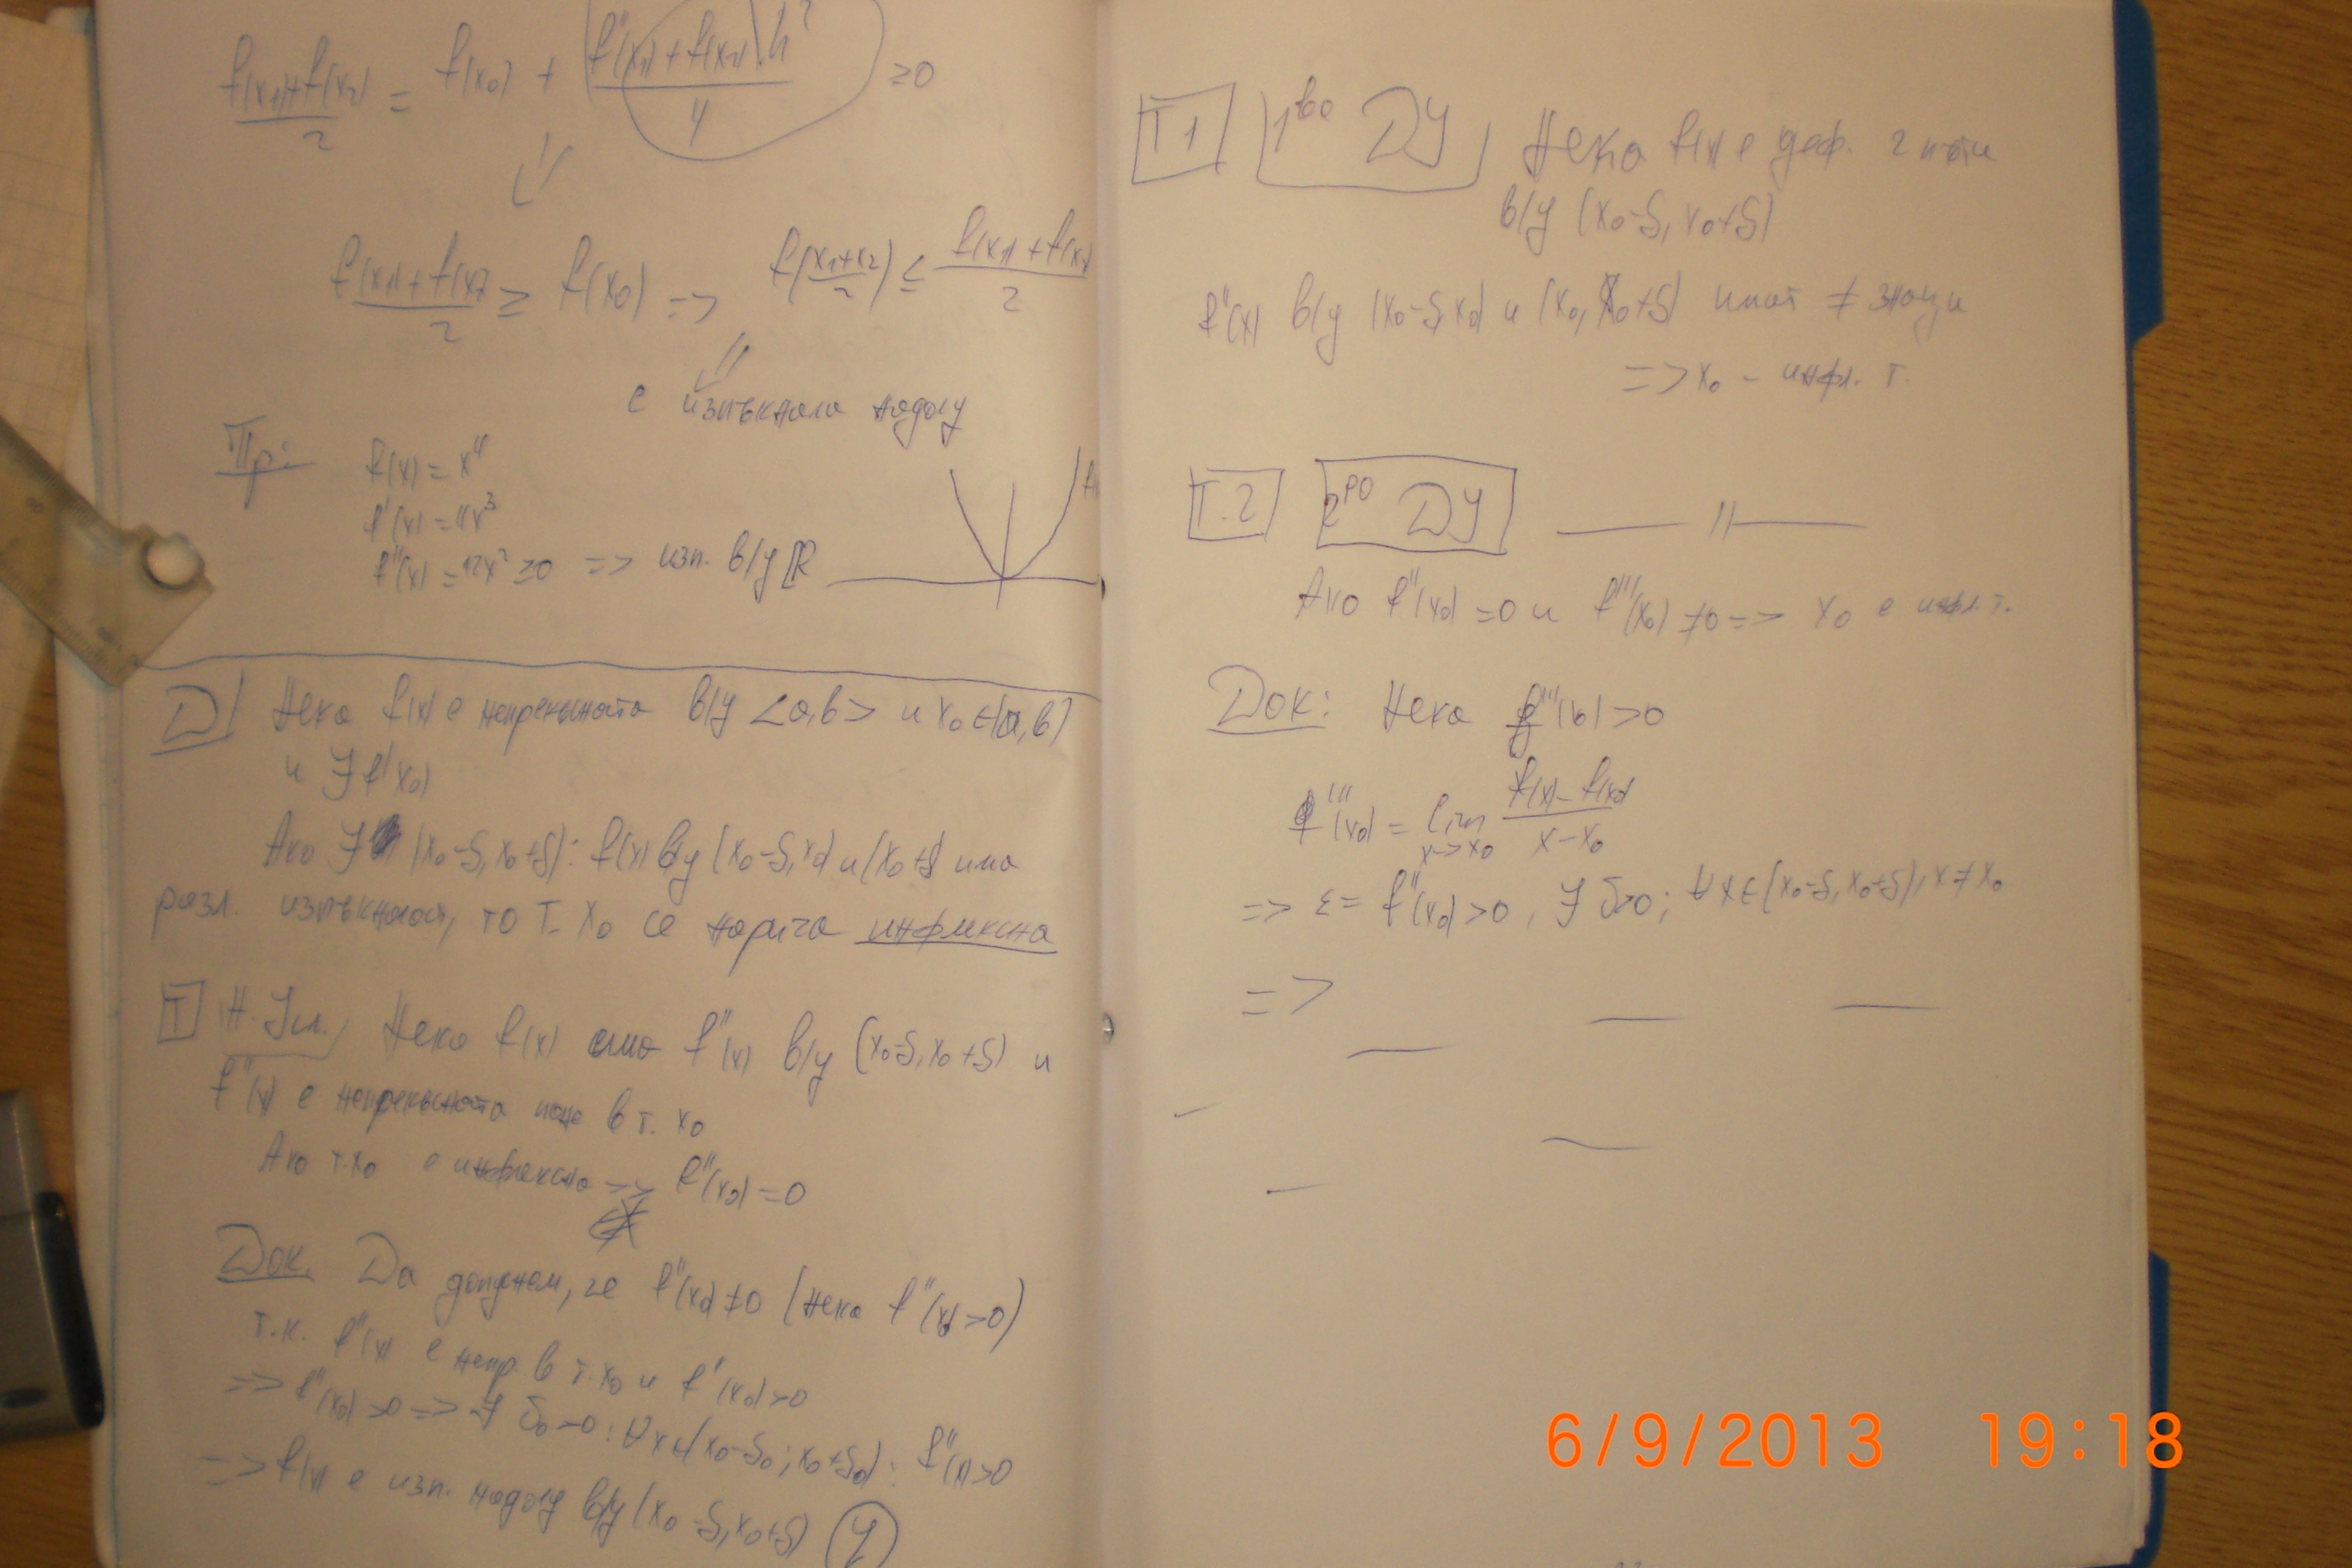 f(x₁)+f(x₂)/2 = f(x₀) + (f''(x₁)+f(x₂)).h²/4 ≥0
f(x₁)+f(x₂)/2 ≥ f(x₀) => f(x₁+x₂/2) ≤ f(x₁)+f(x₂)/2
е изпъкнала надолу
Пр:
f(x) = x⁴
f'(x) = 4x³
f''(x) = 12x² ≥0 => изп. в/у R
Д/ Нека f(x) е непрекъсната в/у <a,b> и x₀∈(a,b)
и ∃ f'(x₀)
Ако ∃ (x₀-δ, x₀+δ): f(x) в/у (x₀-δ, x₀) и (x₀+δ) има
разл. изпъкналост, то т. x₀ се нарича инфлексна
Т Н. Усл. Нека f(x) има f''(x) в/у (x₀-δ, x₀+δ) и
f''(x) е непрекъсната поне в т. x₀
Ако т. x₀ е инфлексна => f''(x₀) = 0
Док. Да допуснем, че f''(x₀) ≠ 0 (нека f''(x₀) > 0)
т.к. f''(x) е непр. в т. x₀ и f''(x₀) > 0
=> f''(x₀) > 0 => ∃ δ₀ > 0 : ∀x∈(x₀-δ₀; x₀+δ₀) : f''(x) > 0
=> f(x) е изп. надолу в/у (x₀-δ, x₀+δ)
Т1 1во ДУ Нека f(x) е деф. 2 пъти
в/у (x₀-δ, x₀+δ)
f''(x) в/у (x₀-δ, x₀) и (x₀, x₀+δ) имат ≠ знаци
=> x₀ - инфл. т.
Т.2 2ро ДУ —— // ——
Ако f''(x₀) = 0 и f'''(x₀) ≠ 0 => x₀ е инфл. т.
Док: Нека f'''(x₀) > 0
f'''(x₀) = lim x->x₀ f(x) - f(x₀)/x-x₀
=> ε = f''(x₀) > 0, ∃ δ>0; ∀x∈(x₀-δ, x₀+δ), x≠x₀
=>
6/9/2013 19:18